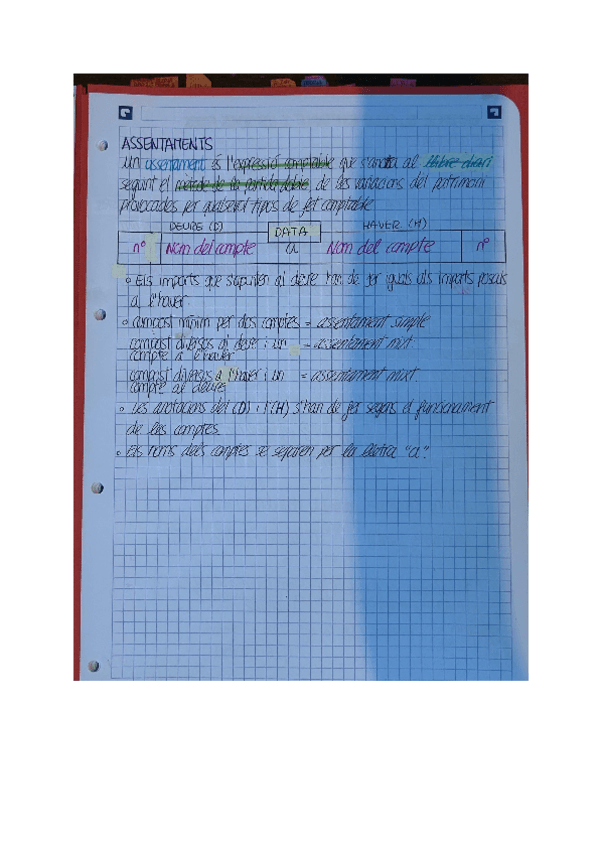 ASSENTAMENTS
un assentament és l'expressió comptable que s'anota al llibre diari
seguint el mètode de la partida doble, de les variacions del patrimoni
provocades per qualsevol tipus de fet comptable
DEURE (D) DATA HAVER (H)
nº Nom del compte a Nom del compte nº
° Els imports que s'apunten al deure han de ser iguals als imports posats
a l'haver
° compost mínim per dos comptes = assentament simple
compost diversos al deure i un = assentament mixt
compte a l'haver
compost diversos a l'haver i un = assentament mixt
compte al deure
° Les anotacions del (D) i l'(H) s'han de fer segons el funcionament
de les comptes.
° Els noms dels comptes se separen per la lletra "a".